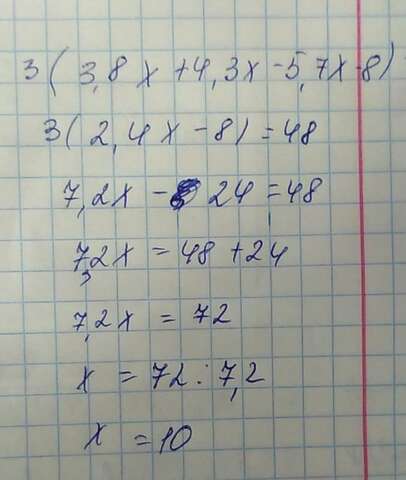 3(3,8x+4,3x-5,7x-8)
3(2,4x-8)=48
7,2x-24=48
7,2x=48+24
7,2x=72
x=72:7,2
x=10